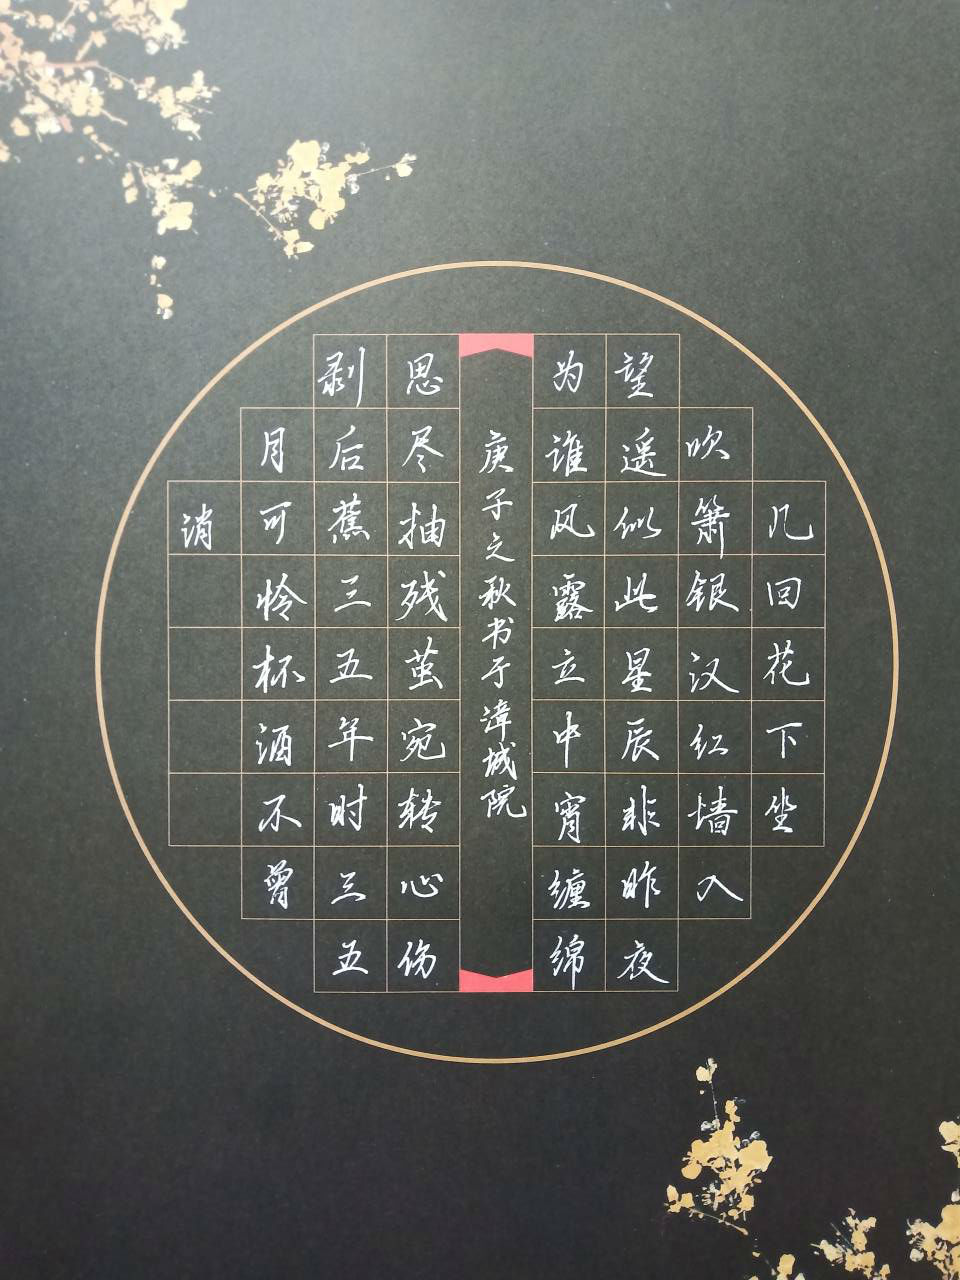 几回花下坐
吹箫银汉红墙入
望遥似此星辰非昨夜
为谁风露立中宵缠绵
思尽抽残茧宛转心伤
剥后蕉三五年时三五
月可怜杯酒不曾
消
庚子之秋书于漳城院